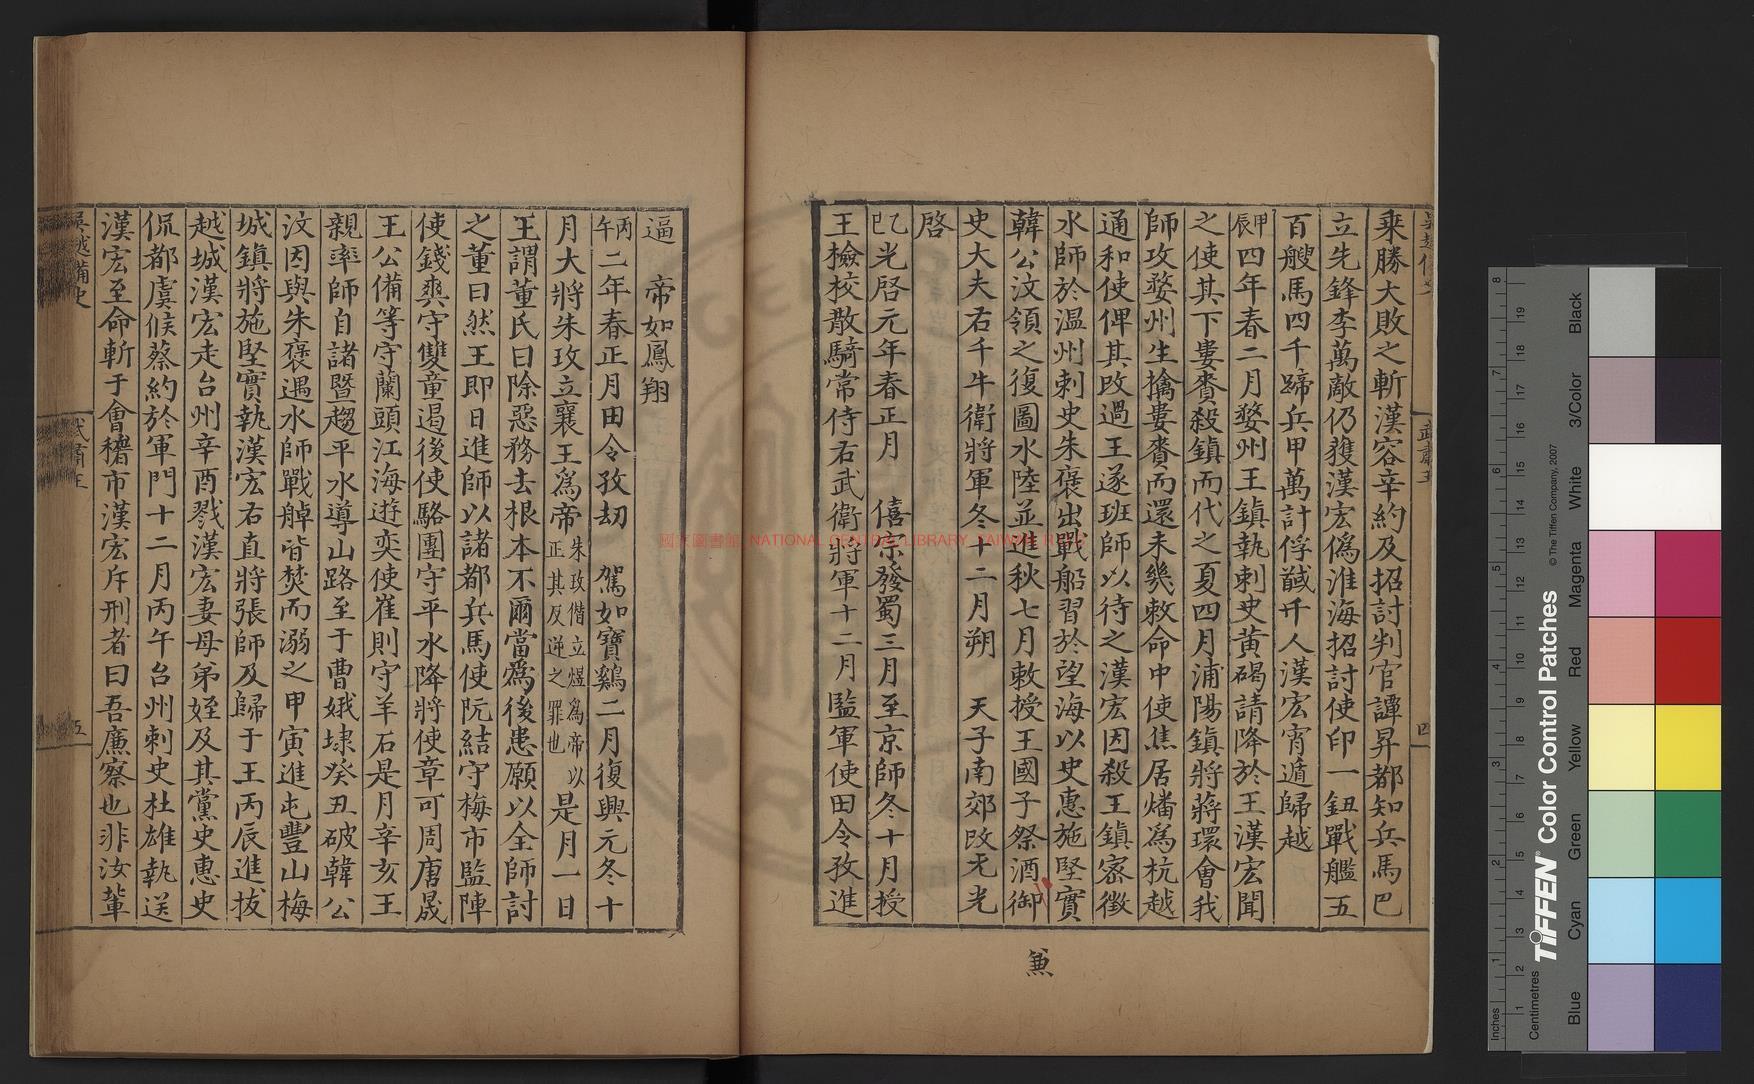 乘勝大敗之斬漢容辛約及招討判官譚昇都知兵馬巴
立先鋒李萬敵仍獲漢宏僞淮海招討使印一鈕戰艦五
百艘馬四千蹄兵甲萬計俘馘千人漢宏宵遁歸越
甲辰四年春二月婺州王鎮執刺史黃碣請降於王漢宏聞
之使其下婁賚殺鎮而代之夏四月浦陽鎮將蔣環會我
師攻婺州生擒婁賚而還未幾敕命中使焦居璠爲杭越
通和使俾其改過王遂班師以待之漢宏因殺王鎮密徵
水師於温州刺史朱褒出戰船習於望海以史惠施堅實
韓公汶領之復圖水陸並進秋七月敕授王國子祭酒御
史大夫右千牛衛將軍冬十二月朔 天子南郊改元光
啓
乙巳光啓元年春正月 僖宗發蜀三月至京師冬十月授
王檢校散騎常侍右武衛將軍十二月監軍使田令孜進
兼
武肅王
四
逼 帝如鳳翔
丙午二年春正月田令孜刼 駕如寶雞二月復興元冬十
月大將朱玫立襄王爲帝朱玫僭立煴爲帝以正其反逆之罪也是月一日
王謂董氏曰除惡務去根本不爾當爲後患願以全師討
之董曰然王即日進師以諸都兵馬使阮結守梅市監陣
使錢爽守雙童遏後使駱團守平水降將使章可周唐晟
王公備等守蘭頭江海遊奕使崔則守羊石是月辛亥王
親率師自諸暨趨平水導山路至于曹娥埭癸丑破韓公
汶因與朱褒遇水師戰艀皆焚而溺之甲寅進屯豐山梅
城鎮將施堅實執漢宏右直將張師及歸于王丙辰進拔
越城漢宏走台州辛酉戮漢宏妻母弟姪及其黨史惠史
侃都虞候蔡約於軍門十二月丙午台州刺史杜雄執送
漢宏至命斬于會稽市漢宏斥刑者曰吾廉察也非汝輩
吳越備史
武肅王
五
國家圖書館 NATIONAL CENTRAL LIBRARY, TAIWAN, R.O.C.
Inches
Centimetres
TIFFEN® Color Control Patches
© The Tiffen Company, 2007
Blue
Cyan
Green
Yellow
Red
Magenta
White
3/Color
Black